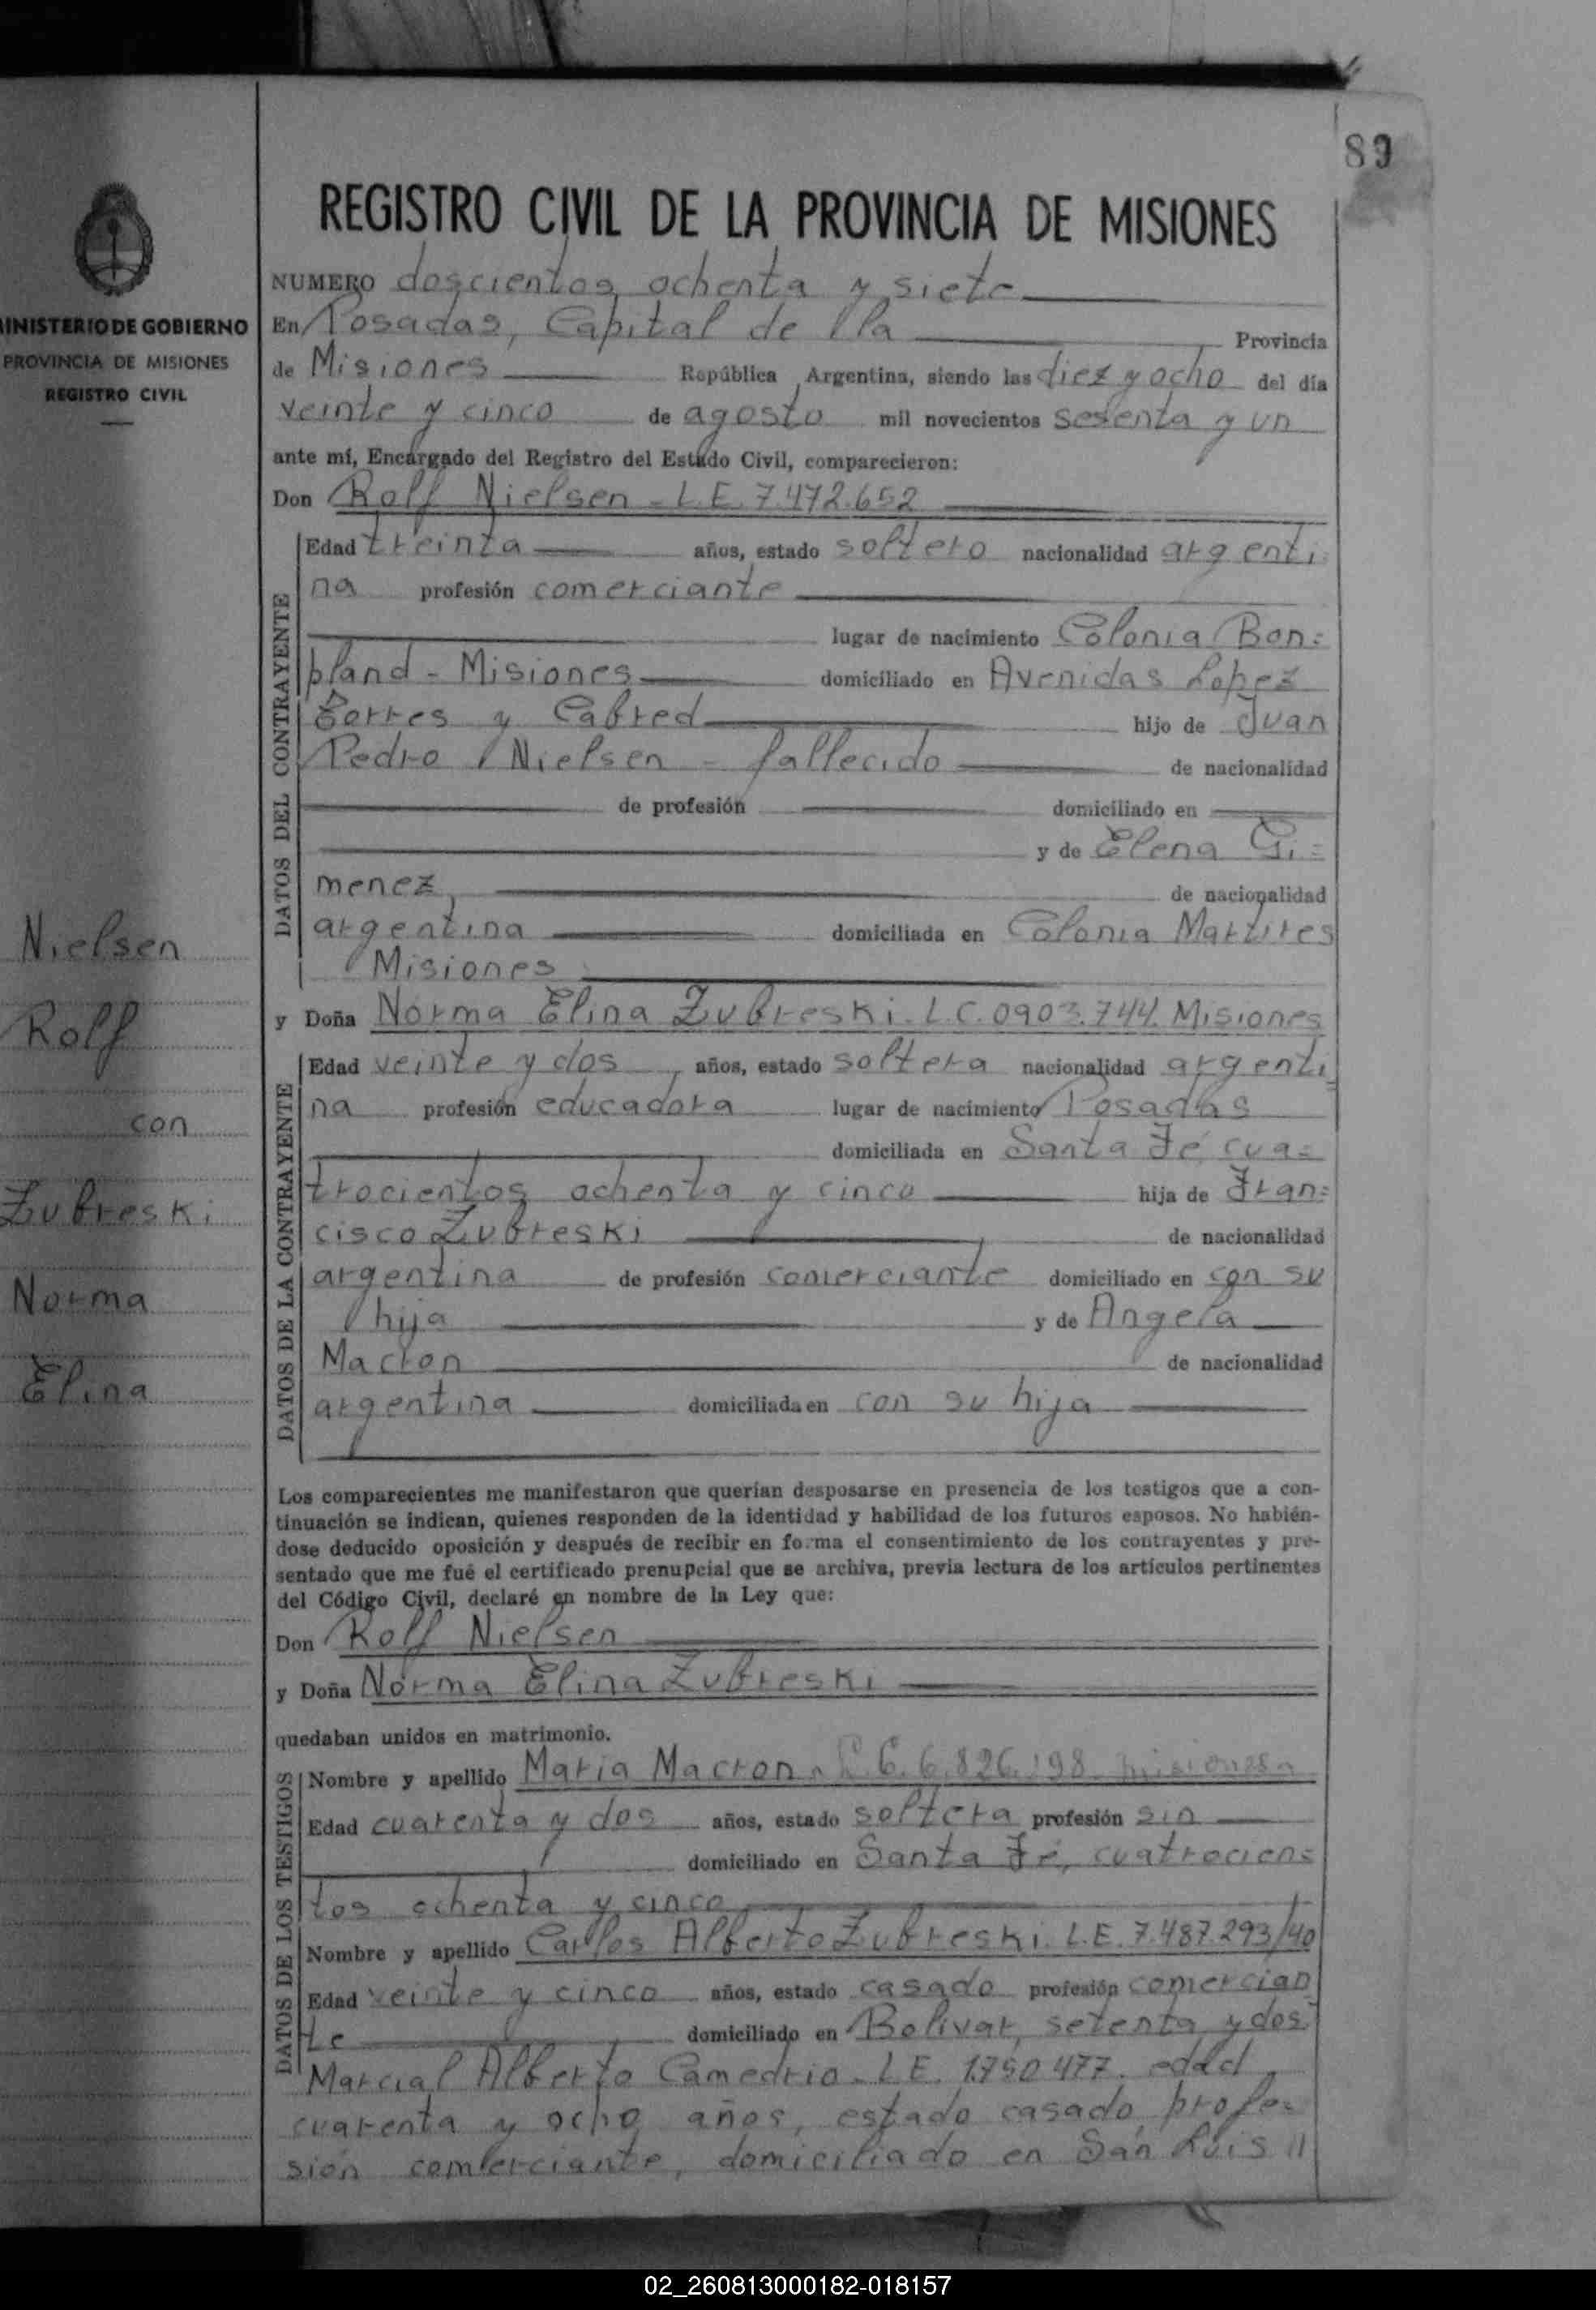 89
MINISTERIO DE GOBIERNO
PROVINCIA DE MISIONES
REGISTRO CIVIL
Nielsen
Rolf
con
Zubreski
Norma
Elina
REGISTRO CIVIL DE LA PROVINCIA DE MISIONES
NUMERO doscientos ochenta y siete
En Posadas, Capital de la Provincia
de Misiones República Argentina, siendo las diez y ocho del día
veinte y cinco de agosto mil novecientos sesenta y un
ante mí, Encargado del Registro del Estado Civil, comparecieron:
Don Rolf Nielsen - L.E. 7.472.652
DATOS DEL CONTRAYENTE
Edad treinta años, estado soltero nacionalidad argenti
na profesión comerciante
lugar de nacimiento Colonia Bon=
pland - Misiones domiciliado en Avenidas Lopez
Torres y Cabred hijo de Juan
Pedro Nielsen - fallecido de nacionalidad
de profesión domiciliado en
y de Elena Gi=
menez de nacionalidad
argentina domiciliada en Colonia Martires
Misiones
y Doña Norma Elina Zubreski. L.C. 0903.744. Misiones
DATOS DE LA CONTRAYENTE
Edad veinte y dos, años, estado soltera nacionalidad argenti
na profesión educadora lugar de nacimiento Posadas
domiciliada en Santa Fé cua=
trocientos ochenta y cinco hija de Fran=
cisco Zubreski de nacionalidad
argentina de profesión comerciante domiciliado en con su
hija y de Angela
Macron de nacionalidad
argentina domiciliada en con su hija
Los comparecientes me manifestaron que querían desposarse en presencia de los testigos que a con-
tinuación se indican, quienes responden de la identidad y habilidad de los futuros esposos. No habién-
dose deducido oposición y después de recibir en forma el consentimiento de los contrayentes y pre-
sentado que me fué el certificado prenupcial que se archiva, previa lectura de los artículos pertinentes
del Código Civil, declaré en nombre de la Ley que:
Don Rolf Nielsen
y Doña Norma Elina Zubreski
quedaban unidos en matrimonio.
DATOS DE LOS TESTIGOS
Nombre y apellido Maria Macron. 6.826.198 misiones
Edad cuarenta y dos años, estado soltera profesión sin
domiciliado en Santa Fé, cuatrocien=
tos ochenta y cinco
Nombre y apellido Carlos Alberto Zubreski. L.E. 7.487.293/40
Edad veinte y cinco años, estado casado profesión comercian
te domiciliado en Bolivar, setenta y dos
Marcial Alberto Camedrio. L.E. 1.750.477. edad
cuarenta y ocho años, estado casado, profe=
sión comerciante, domiciliado en San Luis //
02_260813000182-018157